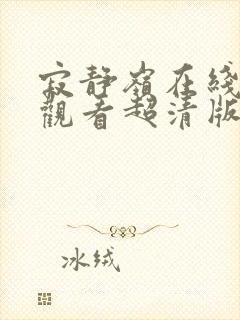 寂静嶺在綫
觀看超清版
冰绒